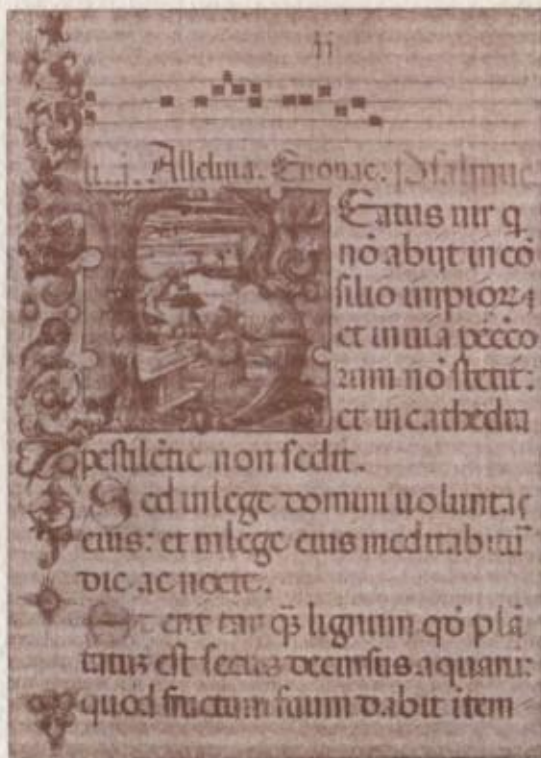 ii
Alleluia. Euouae. Psalmus
Eatus uir q
nō abijt in cō
silio impioꝝ
et in uia pecco
rum nō stetit:
et in cathedra
pestilētie non sedit.
Sed in lege domini uoluntas
eius: et in lege eius meditabitur̄
die ac nocte.
Et erit tanqꝫ lignum qđ plā
tatuꝫ est secus decursus aquarum:
quod fructum suum dabit item